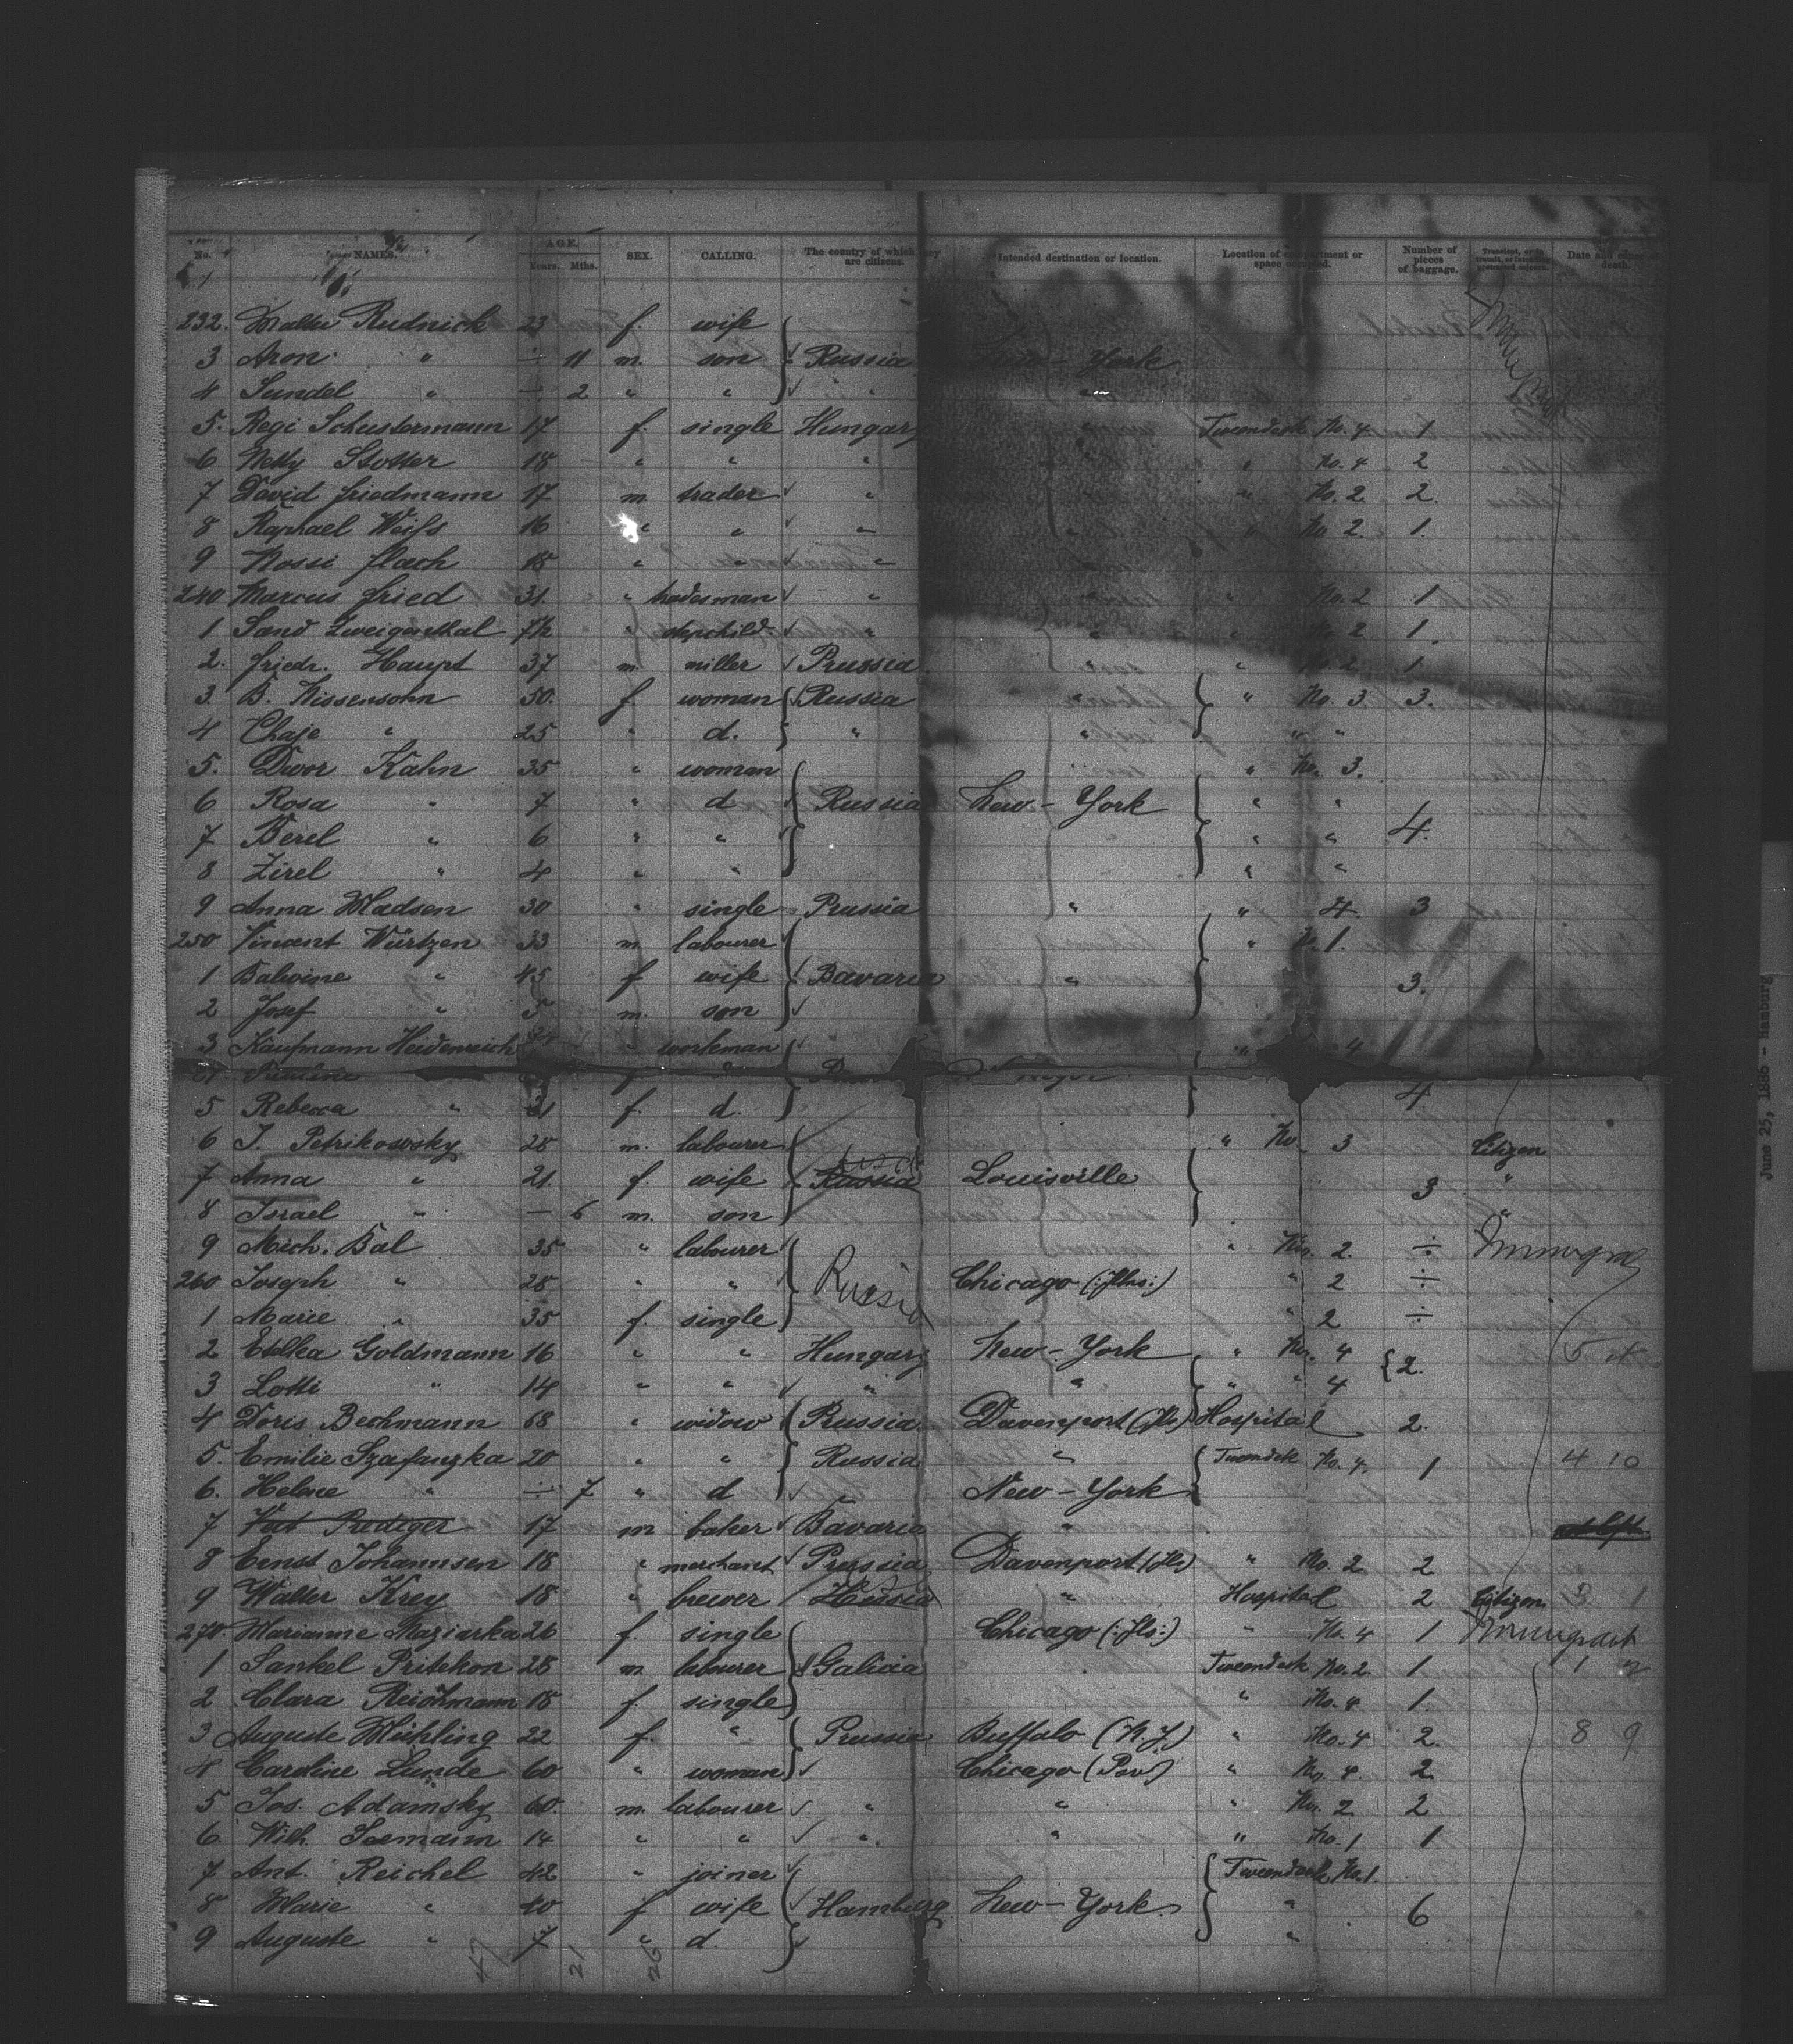 No. NAMES. AGE. Years. Mths. SEX. CALLING. The country of which they are citizens. Intended destination or location. Location of compartment or space occupied. Number of pieces of baggage. Date and cause of death.
232. Rudnick 23 f. wife
3 Aron " ÷ 11 m. son Russia New-York
4 Sundel " ÷ 2 " " " "
5. Regi Schustermann 17 f. single Hungary " Tweendeck No. 4. 1
6 Netty Stotter 18 " " " " " No. 4 2
7 David Friedmann 17 m trader " " " No. 2. 2.
8 Raphael Weiss 16 " " " " " No 2. 1.
9 Flach 18 " " "
240 Marcus Fried 31. " " " " No. 2 1
1 Sand Zweigenthal " " " " No. 2 1.
2. Friedr. Haupt 37 m. miller Prussia " " No. 2. 1.
3. B. Nissensohn 50. f. woman Russia " " No. 3 3.
4 Chaje " 25 " d. " " " "
5. Dwor Kahn 35 " woman " No. 3.
6 Rosa " 7 " d Russia New-York " "
7 Berel " 6 " " " " 4.
8 Zirel " 4 " " " "
9 Anna Madsen 30 " single Prussia " " 4. 3
250 Vincent Würtzen 33 m. labourer " No. 1.
1 Balwine " 45 f wife Bavaria " 3.
2 Josef " 5 m. son
3 Kaufmann Heidenreich " workman " 4
4. Pauline
5 Rebecca " 21 f. d. 4
6 J. Petrikowsky 28 m. labourer " No. 3 Citizen
7 Anna " 21. f. wife Russia Louisville 3 "
8 Israel " — 6 m. son "
9 Mich. Bal 35 " labourer " No. 2. ÷
260 Joseph " 28 " " Russia Chicago (:Ills:) " 2 ÷
1 Marie " 35 f. single " 2 ÷
2 Etelka Goldmann 16 " " Hungary New-York " No. 4 2.
3 Lotti " 14 " " " " " " 4
4 Doris Bechmann 68 " widow Prussia Davenport Hospital 2.
5. Emilie 20 " " Russia " Tweendek No. 4. 1 4 10
6. Helene " ÷ 7 " d New-York
7 Rediger 17 m baker Bavaria "
8 Ernst Johannsen 18 " merchant Prussia Davenport " No. 2 2
9 Walter Krey 18 " brewer " Hospital 2 Citizen 3 1
270. Marianne Maziarka 26 f. single Chicago (:Ills:) " No. 4 1
1 Sankel Pritekon 28 m. labourer Galicia " Tweendeck No. 2. 1 1 2
2 Clara Reichmann 18 f. single " No. 4 1.
3 Auguste Mühling 22 f. " Prussia Buffalo (N.Y.) " No. 4 2. 8 9
4 Caroline Lunde 60 " woman Chicago " No. 4. 2
5 Jos. Adamsky 60. m. labourer " " " No. 2 2
6. Wilh. Seemann 14 " " " " " No. 1 1
7 Ant. Reichel 42 " joiner Tweendeck No. 1.
8 Marie " 40 f wife Hamburg New-York " 6
9 Auguste " 7 " d. "
47 21 26
June 25, 1886 - Hamburg